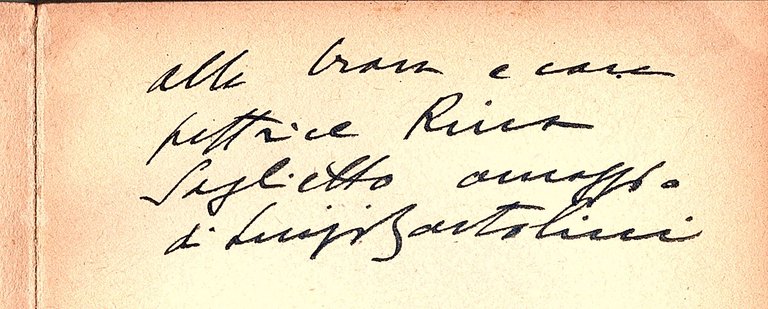 alla brava e cara
pittrice Rina
Soglietto omaggio
di Luigi Bartolini